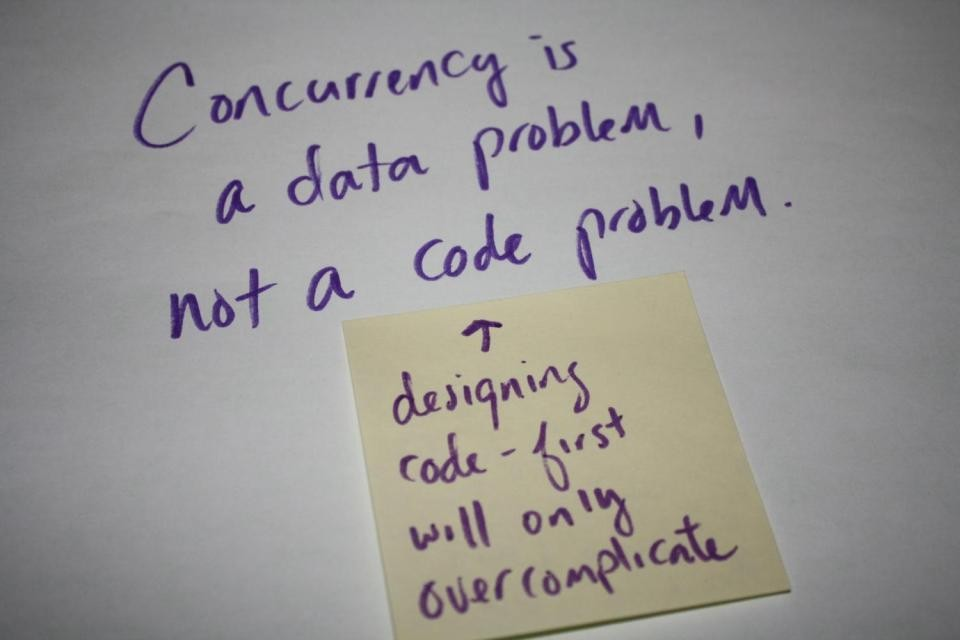 Concurrency is
a data problem,
not a code problem.
↑
designing
code-first
will only
overcomplicate